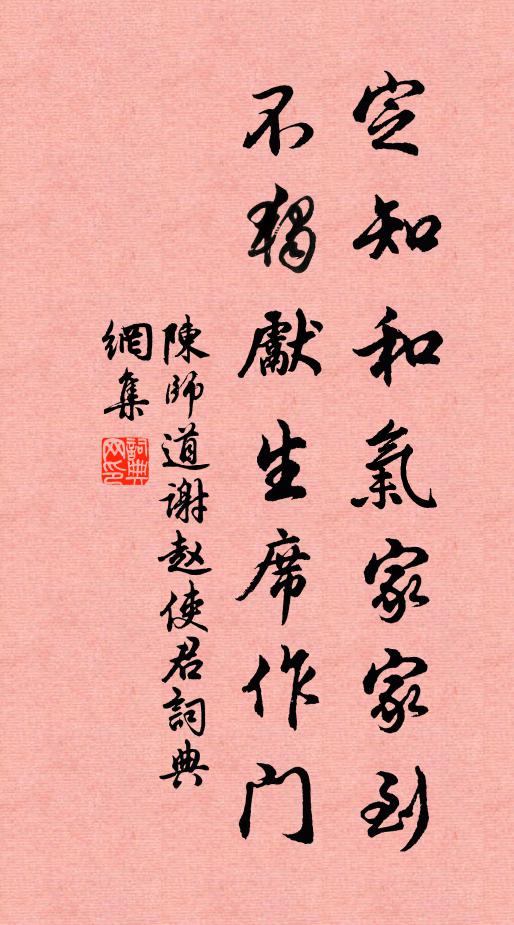 定知和氣家家到
不獨獻生席作门
陳師道謝赵使君詞典
網集
詞典
网印